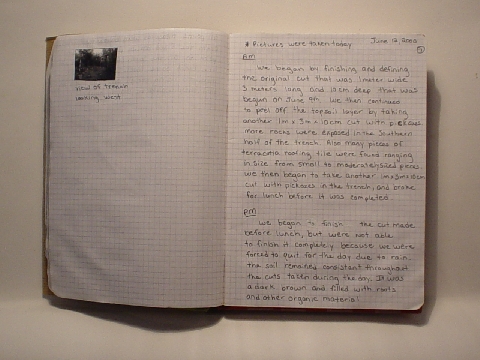 view of trench
looking west
* Pictures were taken today
June 12, 2000
5
AM
We began by finishing and defining
the original cut that was 1 meter wide
5 meters long and 10cm deep that was
began on June 9th. We then continued
to peel off the topsoil layer by taking
another 1m x 5m x 10cm cut with pickaxes
more rocks were exposed in the southern
half of the trench. Also many pieces of
terracotta roofing tile were found ranging
in size from small to moderate sized pieces.
we then began to take another 1m x 5m x 10cm
cut with pickaxes in the trench, and broke
for lunch before it was completed
PM
We began to finish the cut made
before lunch, but were not able
to finish it completely because we were
forced to quit for the day due to rain.
The soil remained consistant throughout
the cuts taken during the day. It was
a dark brown and filled with roots
and other organic material